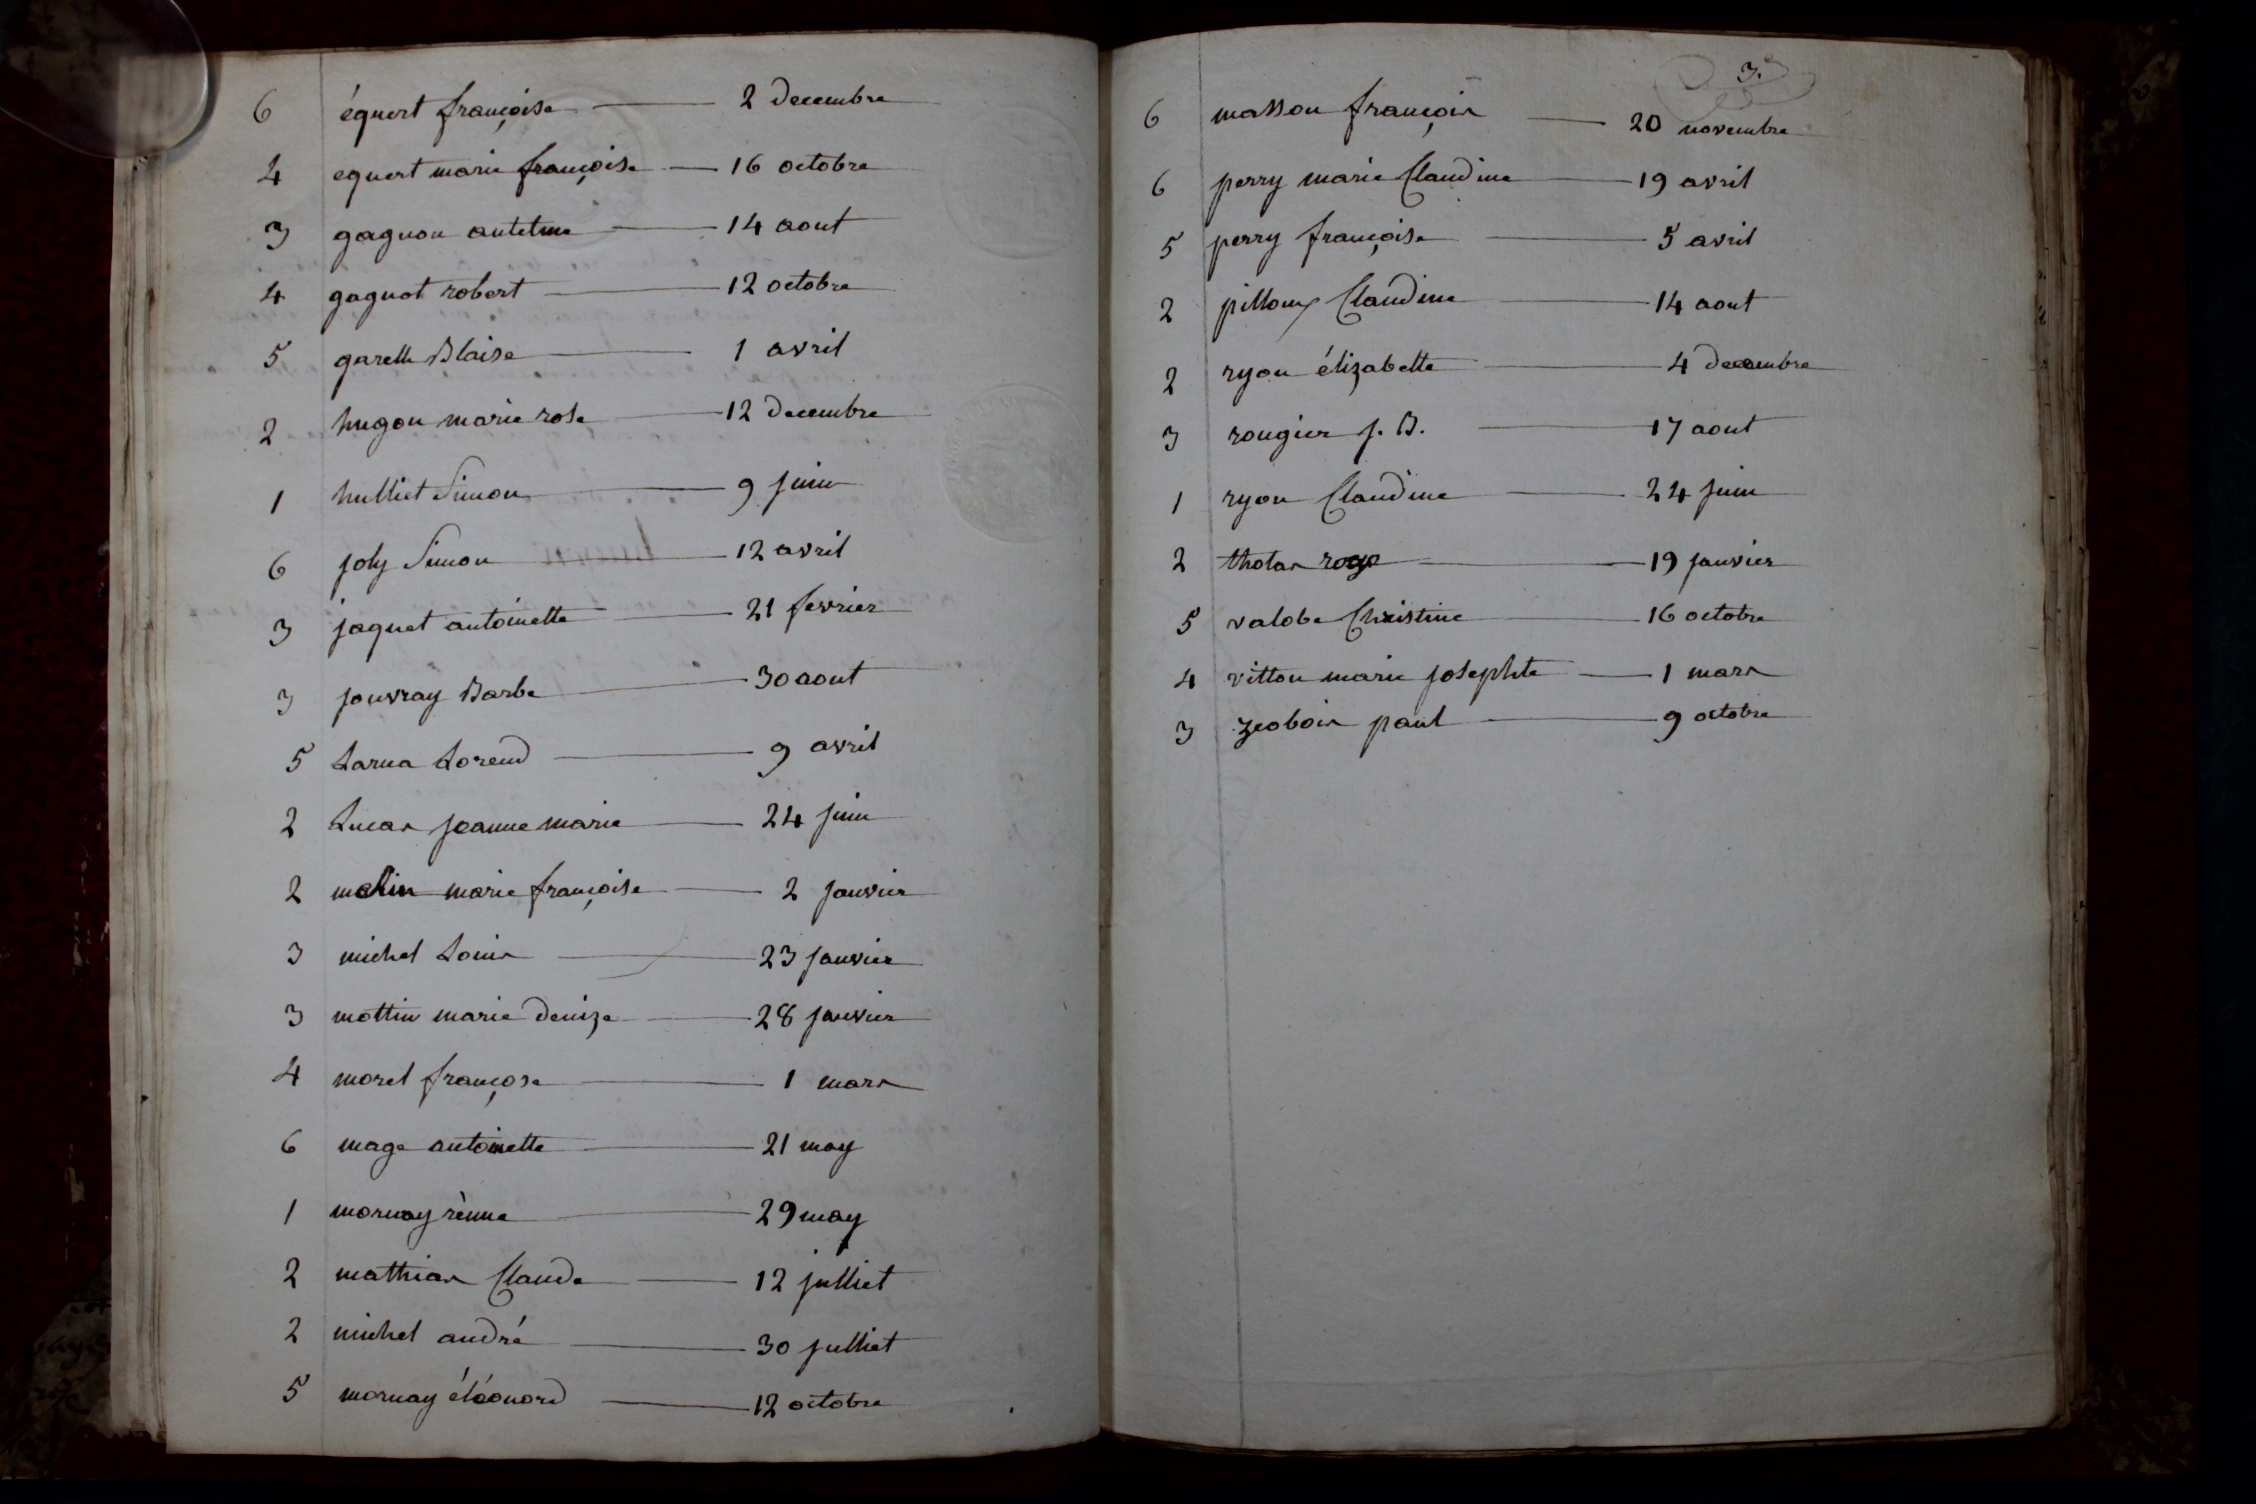 6 équert françoise 2 decembre
4 equert marie françoise 16 octobre
3 gagnon antetme 14 aout
4 gagnot robert 12 octobre
5 garelle Blaise 1 avril
2 hugon marie rose 12 decembre
1 hulliet Simon 9 juin
6 joly Simon 12 avril
3 jaquet antoinette 21 fevrier
3 jouvray Barbe 30 aout
5 Larua Lorend 9 avril
2 Lucas jeanne marie 24 juin
2 malin marie françoise 2 janvier
3 michel Louis 23 janvier
3 mottin marie denize 28 janvier
4 morel françose 1 mars
6 mage antoinette 21 may
1 mornay rènne 29 may
2 mathias Claude 12 julliet
2 michel andré 30 julliet
5 mornay éléonord 12 octobre
3.
6 masson françois 20 novembre
6 perry marie Claudine 19 avril
5 perry françoise 5 avril
2 pilloux Claudine 14 aout
2 ryon élizabette 4 decembre
3 rougier j. B. 17 aout
1 ryon Claudine 24 juin
2 tholas 19 janvier
5 valobe Christine 16 octobre
4 vitton marie josephte 1 mars
3 zeobois paul 9 octobre